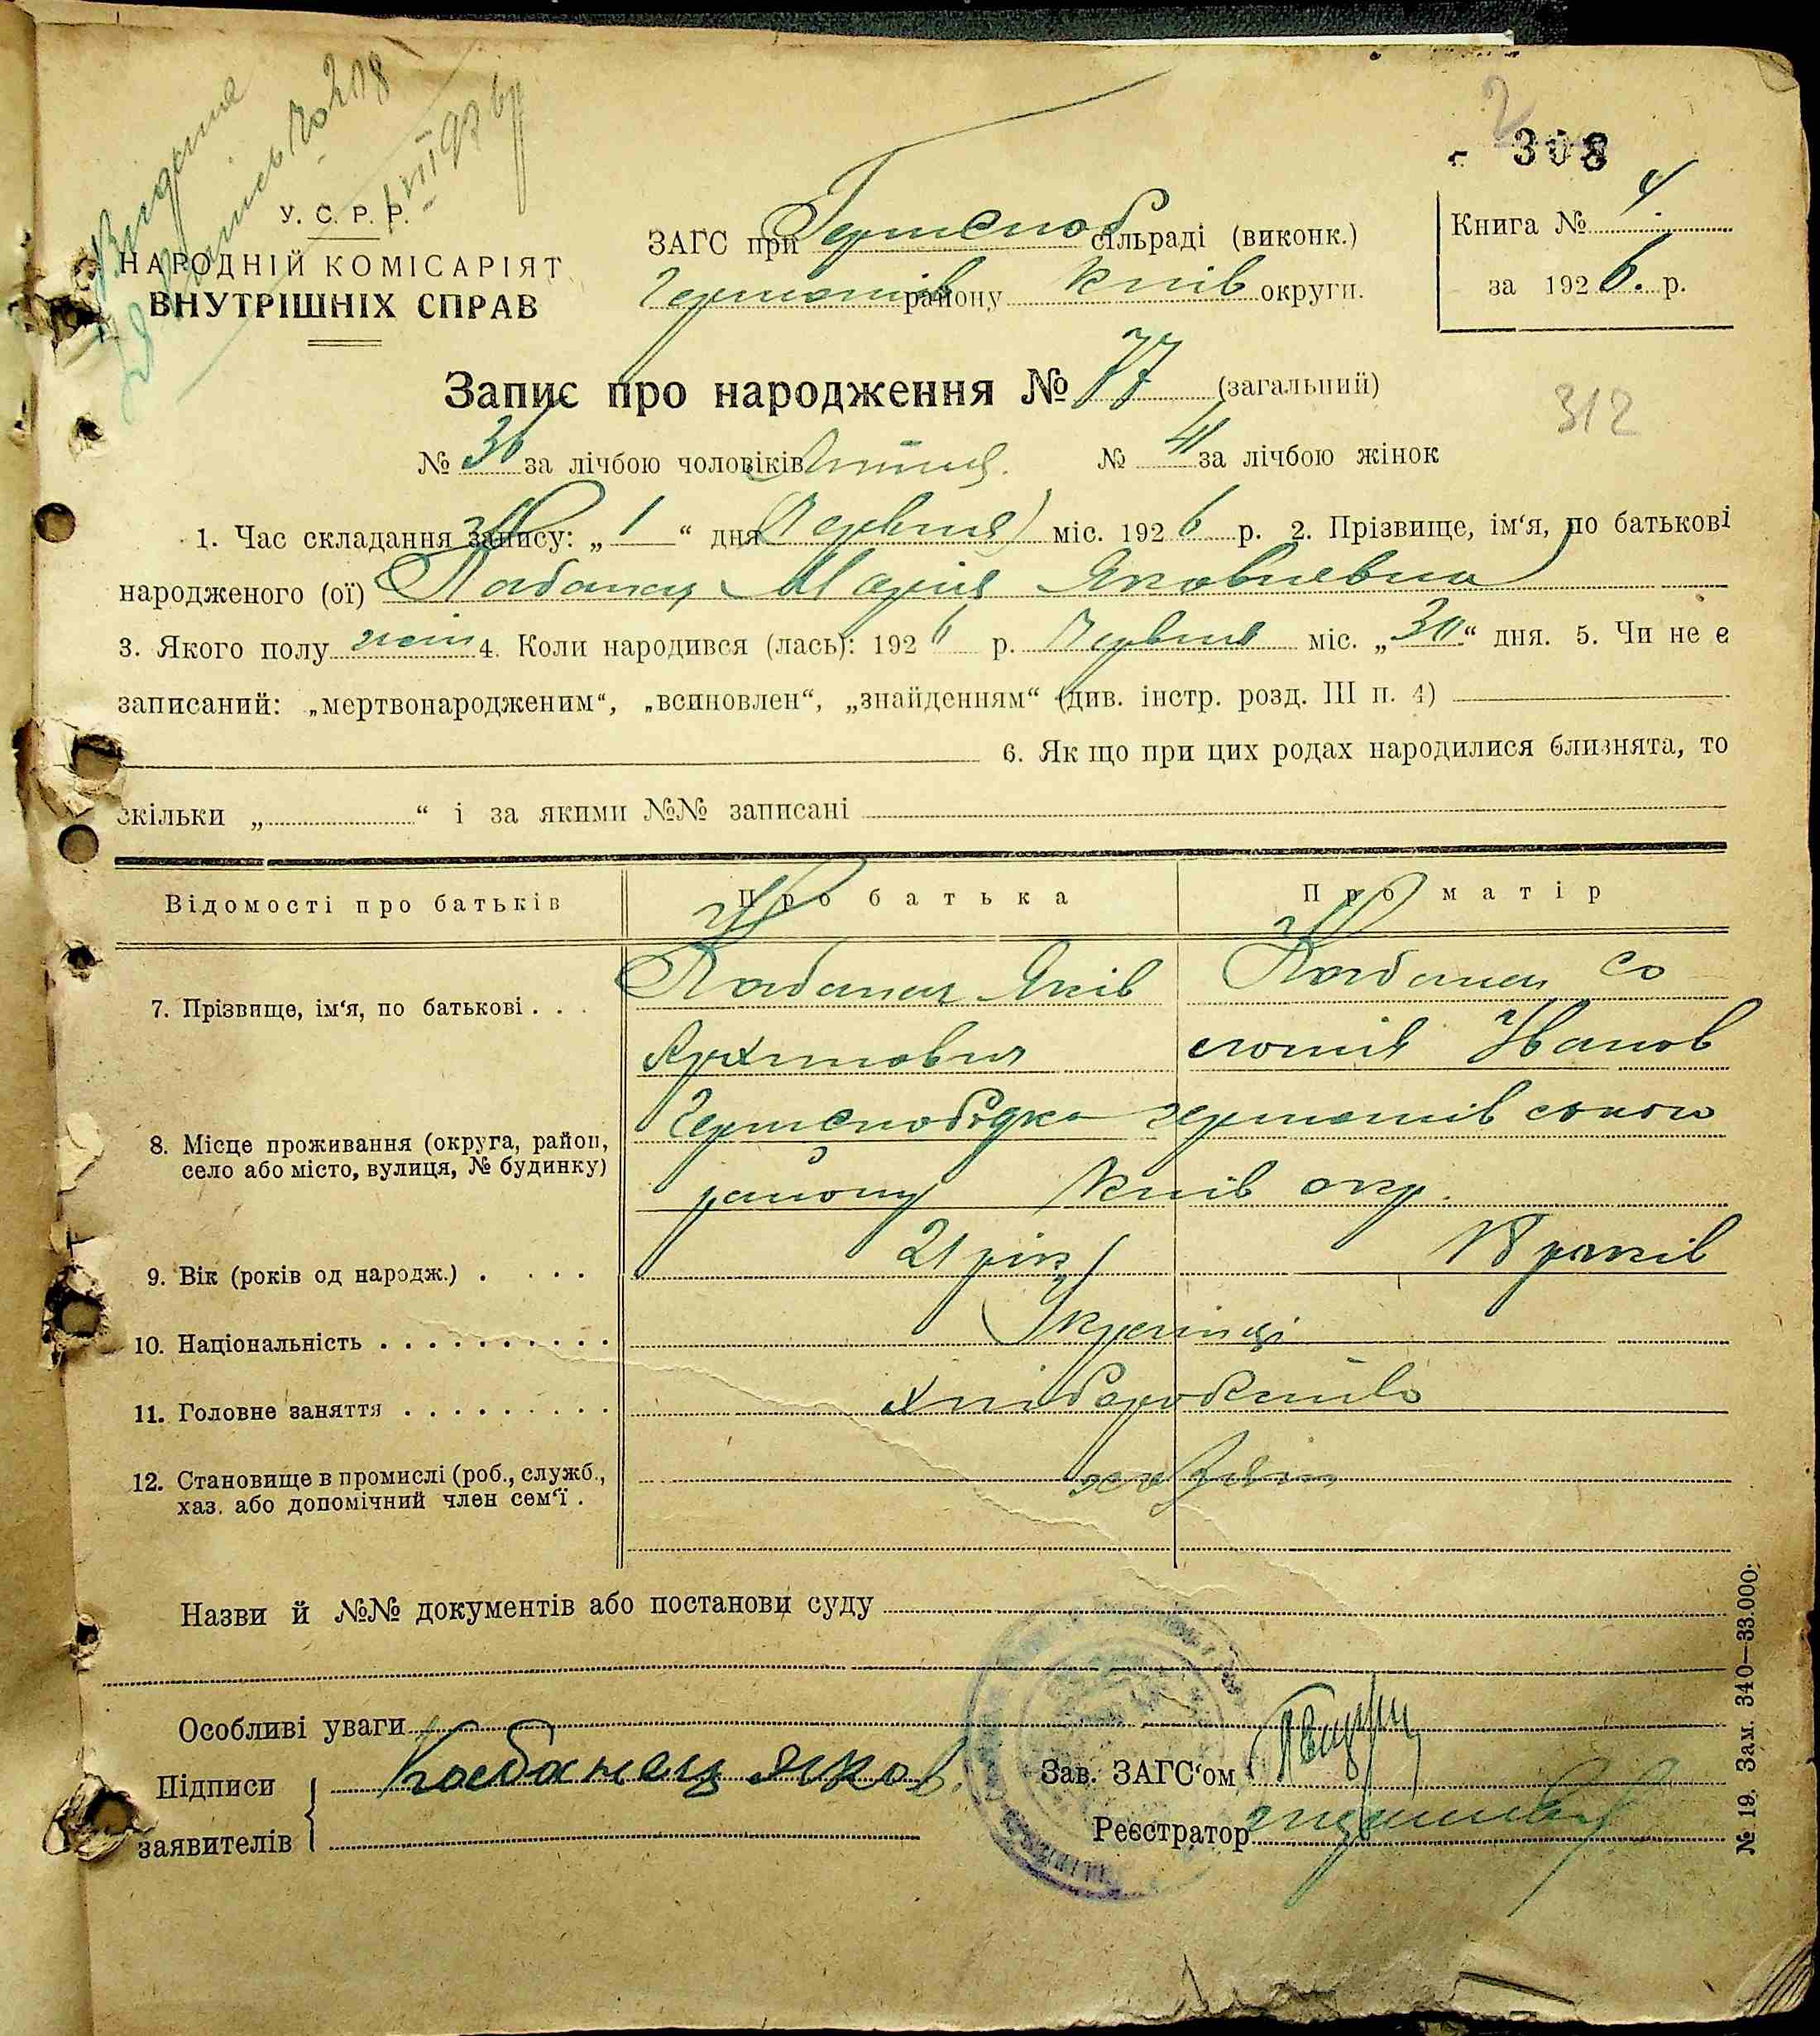 Видана
Випись № 208
1/VII 926 р
308
2
У. С. Р. Р.
НАРОДНІЙ КОМІСАРІЯТ
ВНУТРІШНІХ СПРАВ
ЗАГС при сільраді (виконк.)
району Київ округи.
Книга № 4.
за 1926. р.
Запис про народження № 77 (загальний)
312
№ 36 за лічбою чоловіків № 41 за лічбою жінок
1. Час складання запису: „ 1 “ дня міс. 1926 р. 2. Прізвище, ім‘я, по батькові
народженого (ої) Кабанец Марія Яковлевна
3. Якого полу жін 4. Коли народився (лась): 1926 р. Червня міс. „30“ дня. 5. Чи не є
записаний: „мертвонародженим“, „всиновлен“, „знайденням“ (див. інстр. розд. III п. 4)
6. Як що при цих родах народилися близнята, то
скільки „ “ і за якими №№ записані
Відомості про батьків Про батька Про матір
7. Прізвище, ім‘я, по батькові . . . Кабанец Яків Кабанец Со
Іванов
8. Місце проживання (округа, район,
село або місто, вулиця, № будинку)
району Київ окр.
9. Вік (років од народж.) . . . . 21 рік 18 років
10. Національність . . . . . . . . . . Українці
11. Головне заняття . . . . . . . . . хліборобство
12. Становище в промислі (роб., служб.,
хаз. або допомічний член сем‘ї . хазяїн
Назви й №№ документів або постанови суду
Особливі уваги
Підписи Кабанец Яков. Зав. ЗАГС‘ом
заявителів Реєстратор
№ 19. Зам. 340—33.000.